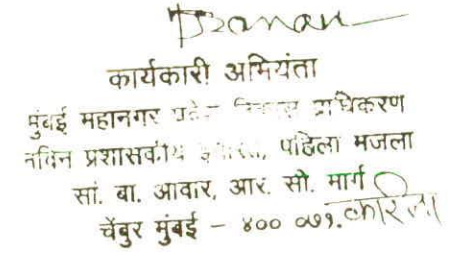 कार्यकारी अभियंता
मुंबई महानगर प्रदेश विकास प्राधिकरण
नविन प्रशासकीय इमारत, पहिला मजला
सां. बा. आवार, आर. सी. मार्ग
चेंबुर मुंबई - ४०० ०७१. करिता